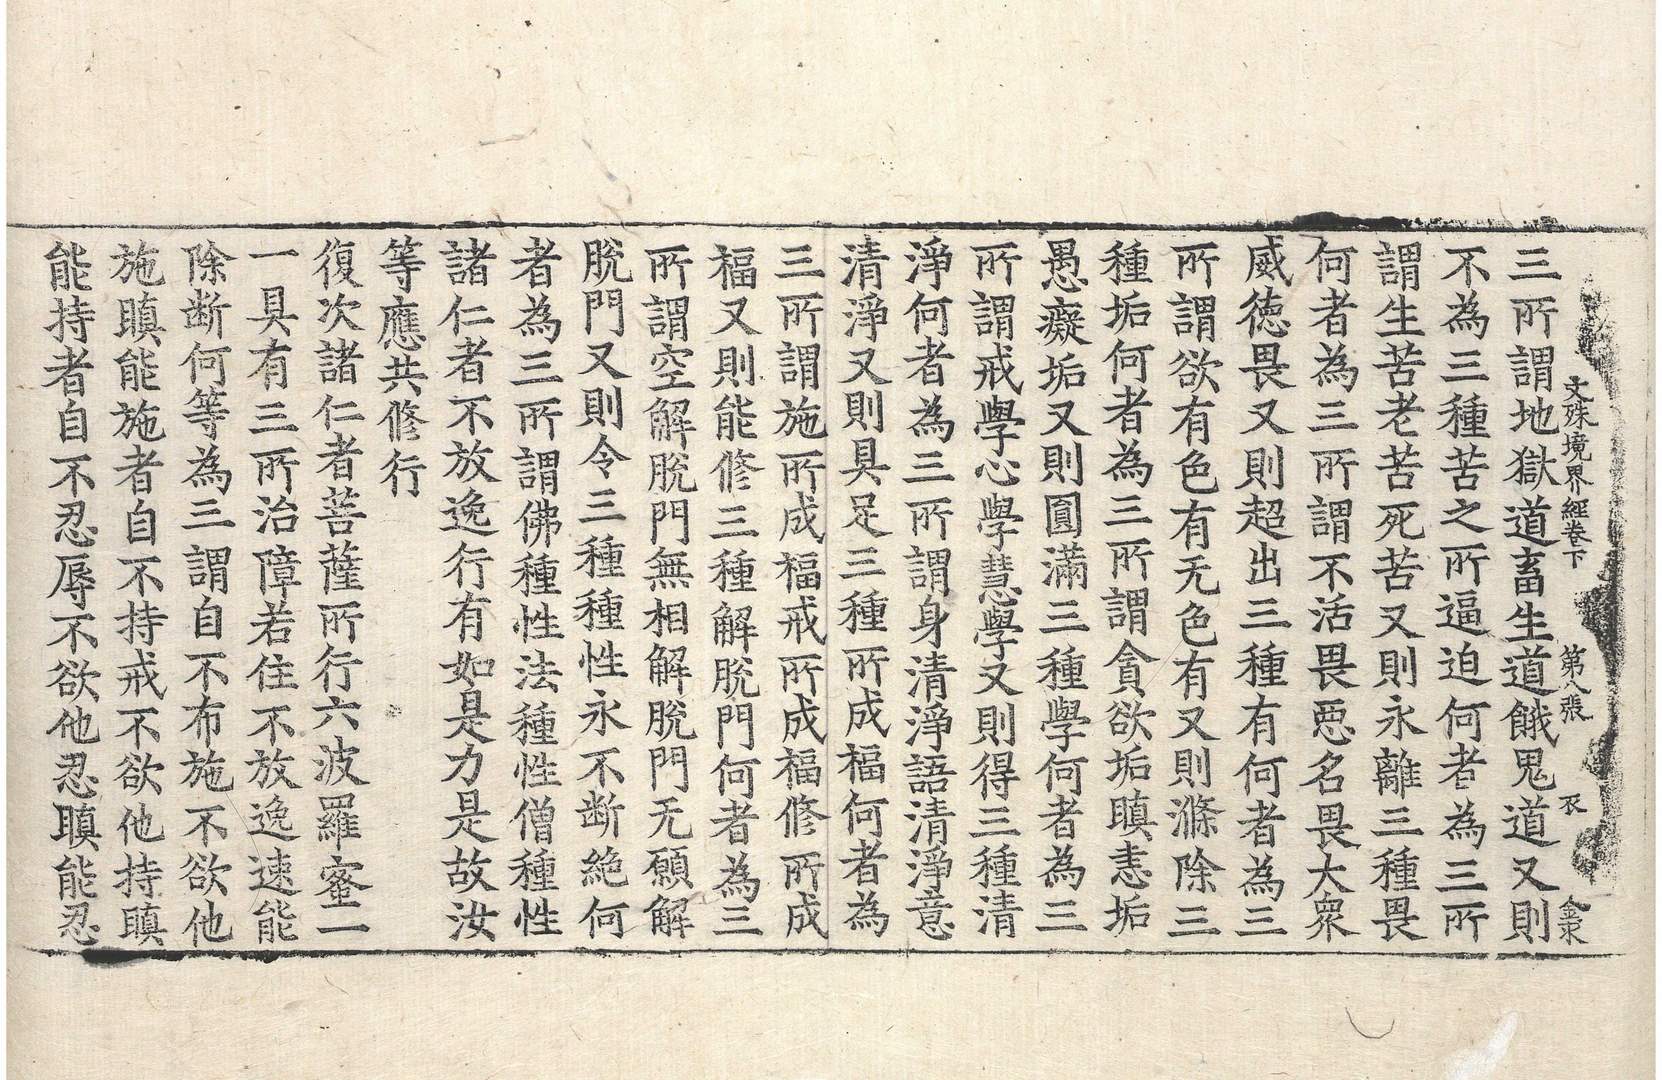 文殊境界經卷下 第八張 衣 金宋
三所謂地獄道畜生道餓鬼道又則
不為三種苦之所逼迫何者為三所
謂生苦老苦死苦又則永離三種畏
何者為三所謂不活畏惡名畏大衆
威德畏又則超出三種有何者為三
所謂欲有色有无色有又則滌除三
種垢何者為三所謂貪欲垢瞋恚垢
愚癡垢又則圓滿三種學何者為三
所謂戒學心學慧學又則得三種清
淨何者為三所謂身清淨語清淨意
清淨又則具足三種所成福何者為
三所謂施所成福戒所成福修所成
福又則能修三種解脫門何者為三
所謂空解脫門無相解脫門无願解
脫門又則令三種種性永不断絶何
者為三所謂佛種性法種性僧種性
諸仁者不放逸行有如是力是故汝
等應共修行
復次諸仁者菩薩所行六波羅蜜一
一具有三所治障若住不放逸速能
除断何等為三謂自不布施不欲他
施瞋能施者自不持戒不欲他持瞋
能持者自不忍辱不欲他忍瞋能忍